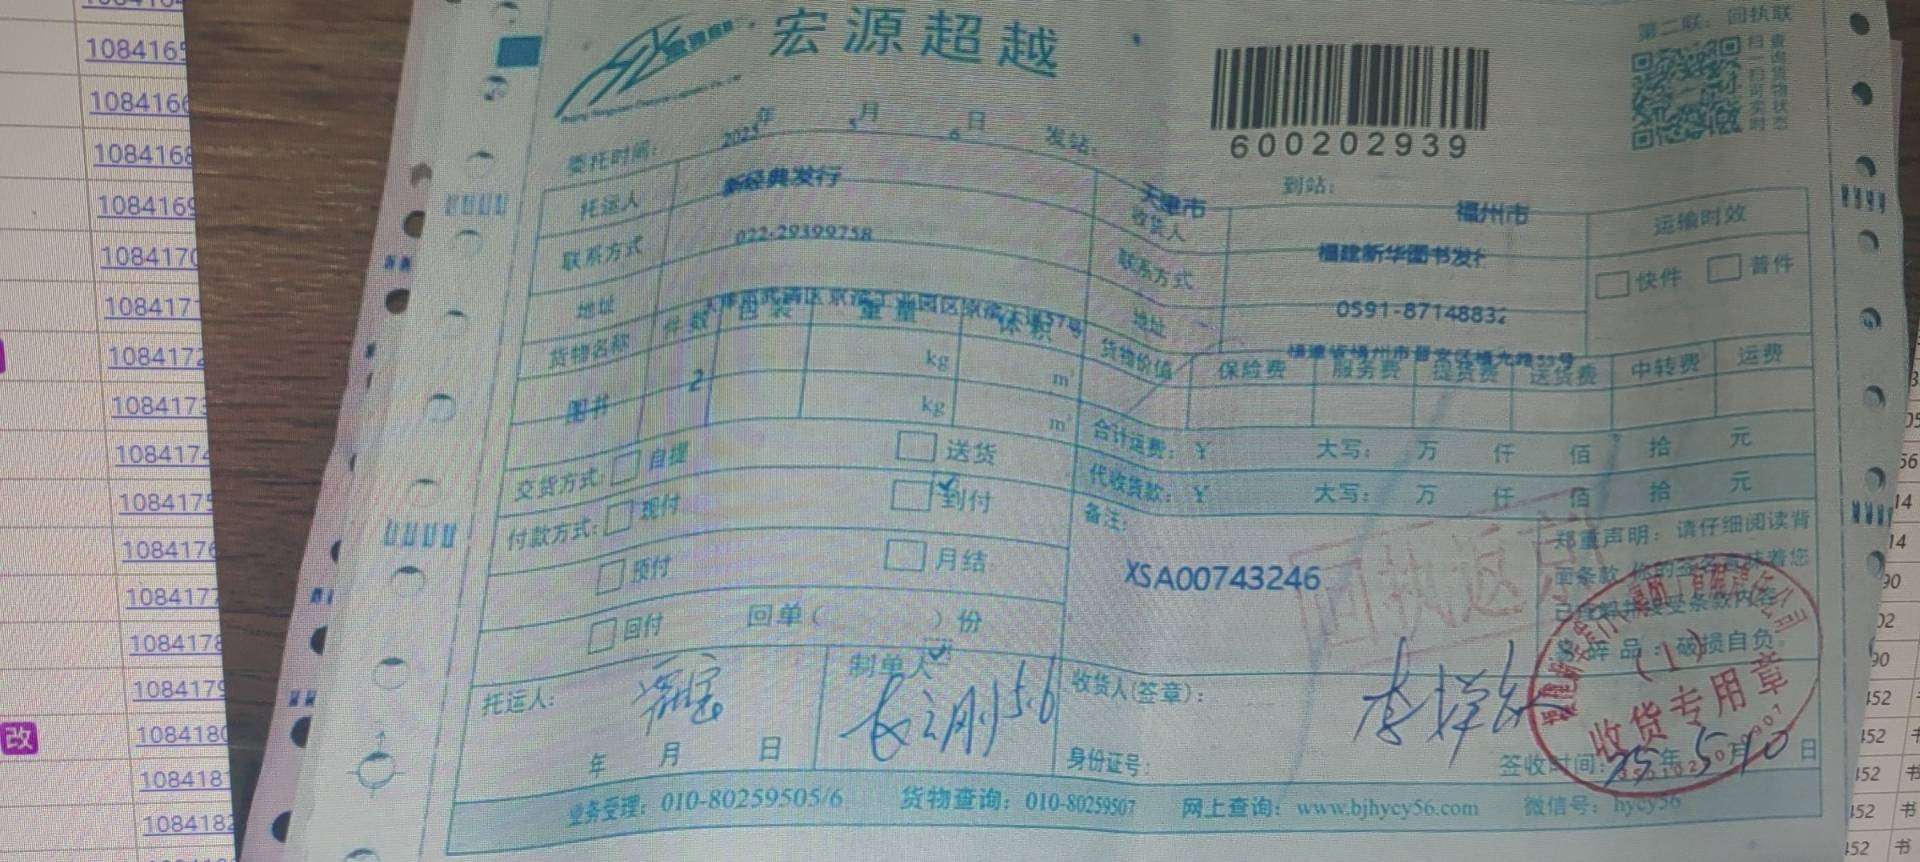 108416
108416
108416
1084169
1084170
108417
1084172
108417
108417
108417
108417
108417
108417
108417
改
108418
108418
108418
宏源超越
600202939
第二联：回执联
扫一扫可实时
查询货物状态
委托时间： 2025年 5月 6日 发站： 天津市 到站： 福州市
托运人 新经典发行 收货人 福建新华图书发行 运输时效
联系方式 022-29399758 联系方式 0591-87148832 快件 普件
地址 天津市武清区京滨工业园区京滨大道57号 地址
货物名称 件数 包装 重量 体积 货物价值 保险费 服务费 提货费 送货费 中转费 运费
图书 2 kg m³
kg m³
合计运费：￥ 大写： 万 仟 佰 拾 元
交货方式： 自提 送货 代收货款：￥ 大写： 万 仟 佰 拾 元
付款方式： 现付 到付
预付 月结
回付 回单（ ）份
备注：
XSA00743246
回执返
郑重声明：请仔细阅读背
面条款，你的签名意味着您
已理解并接受条款内容！
易碎品：破损自负。
托运人： 制单人 5.6 收货人(签章)：
(1)
收货专用章
年 月 日 身份证号： 签收时间： 25年 5月 10日
业务受理：010-80259505/6 货物查询：010-80259507 网上查询：www.bjhycy56.com 微信号：hycy56
452 书
452 书
452 书
452